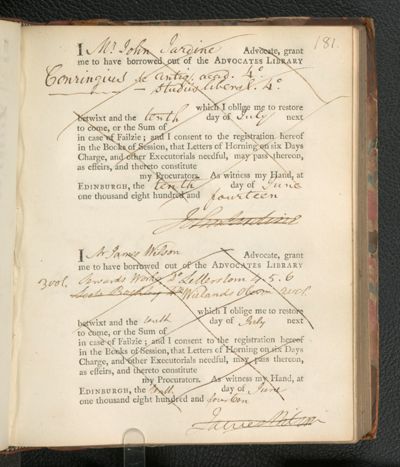 181.
I Mr John Jardine Advocate, grant
me to have borrowed out of the ADVOCATES LIBRARY
Conringius de antiq. acad. 4o
— Studiis liberal. 4o
which I oblige me to restore
betwixt and the tenth day of July next
to come, or the Sum of
in case of Failzie; and I consent to the registration hereof
in the Books of Session, that Letters of Horning on six Days
Charge, and other Executorials needful, may pass thereon,
as effeirs, and thereto constitute
my Procurators. As witness my Hand, at
EDINBURGH, the tenth day of June
one thousand eight hundred and fourteen
John Jardine
I Mr James Wilson Advocate, grant
me to have borrowed out of the ADVOCATES LIBRARY
3 vol. Sewards Works Do Letters tom 4 5. 6
Wielands Oberon 2 vol.
which I oblige me to restore
betwixt and the tenth day of July next
to come, or the Sum of
in case of Failzie; and I consent to the registration hereof
in the Books of Session, that Letters of Horning on six Days
Charge, and other Executorials needful, may pass thereon,
as effeirs, and thereto constitute
my Procurators. As witness my Hand, at
EDINBURGH, the tenth day of June
one thousand eight hundred and fourteen
James Wilson